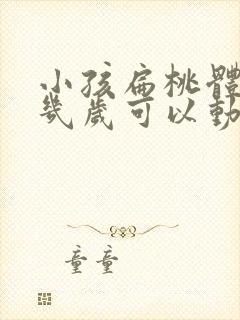 小孩扁桃體
幾歲可以動
童童